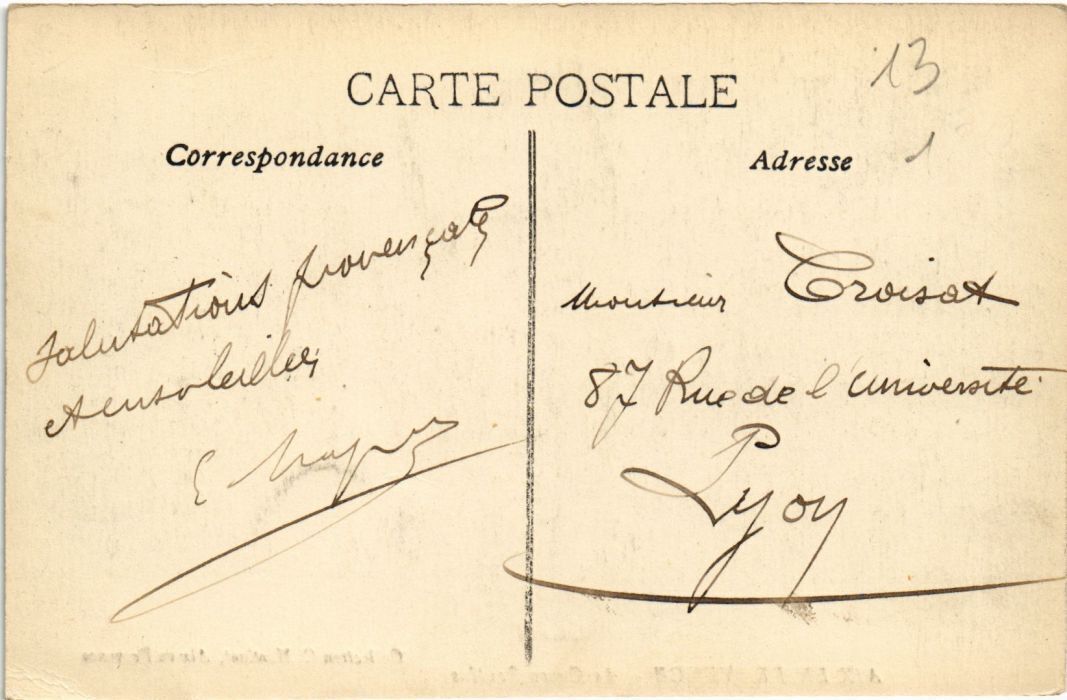 CARTE POSTALE
13
1
Correspondance
Salutations provençales
et ensoleillées
E
Adresse
Monsieur Croisat
87 Rue de l'université
Lyon